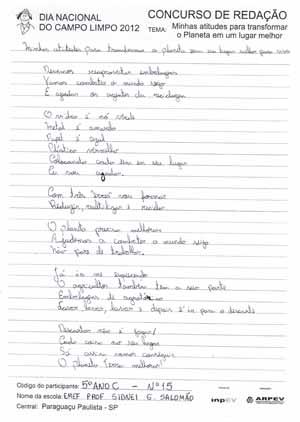 DIA NACIONAL
DO CAMPO LIMPO 2012
CONCURSO DE REDAÇÃO
TEMA: Minhas atitudes para transformar
o Planeta em um lugar melhor
Minhas atitudes para transformar o planeta em um lugar melhor para viver
Devemos reaproveitar embalagens
Vamos combater o mundo sujo
E ajudar os agentes da reciclagem
O vidro é no verde
Metal é amarelo
Papel é azul
Plástico vermelho
Colocando cada um em seu lugar
Eu vou ajudar.
Com três "erres" vou formar
Reduzir, reutilizar e reciclar
O planeta precisa melhorar
Ajudamos a combater o mundo sujo
Não pare de trabalhar.
Já ia me esquecendo
O agricultor também tem a sua parte
Embalagens de agrotóxico
Lavar, lavar e depois é ir para o descarte
Descartar não é jogar/
Cada coisa no seu lugar
Só assim vamos conseguir
O planeta Terra melhorar!
Código do participante: 5º ANO C - Nº 15
Nome da escola: EMEF. PROF. SIDNEI G. SALOMÃO
Central: Paraguaçu Paulista - SP
inpEV
ARPEV